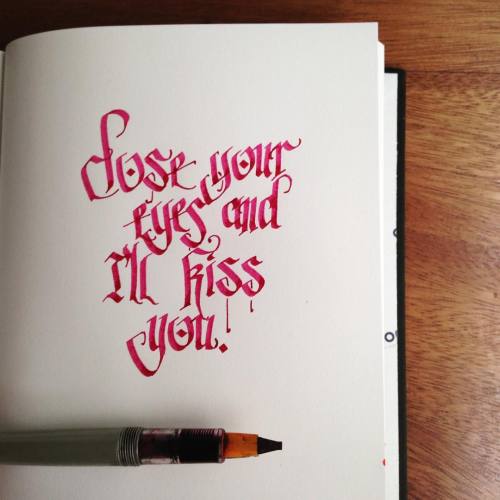 Close your
eyes and
I'll kiss
you!